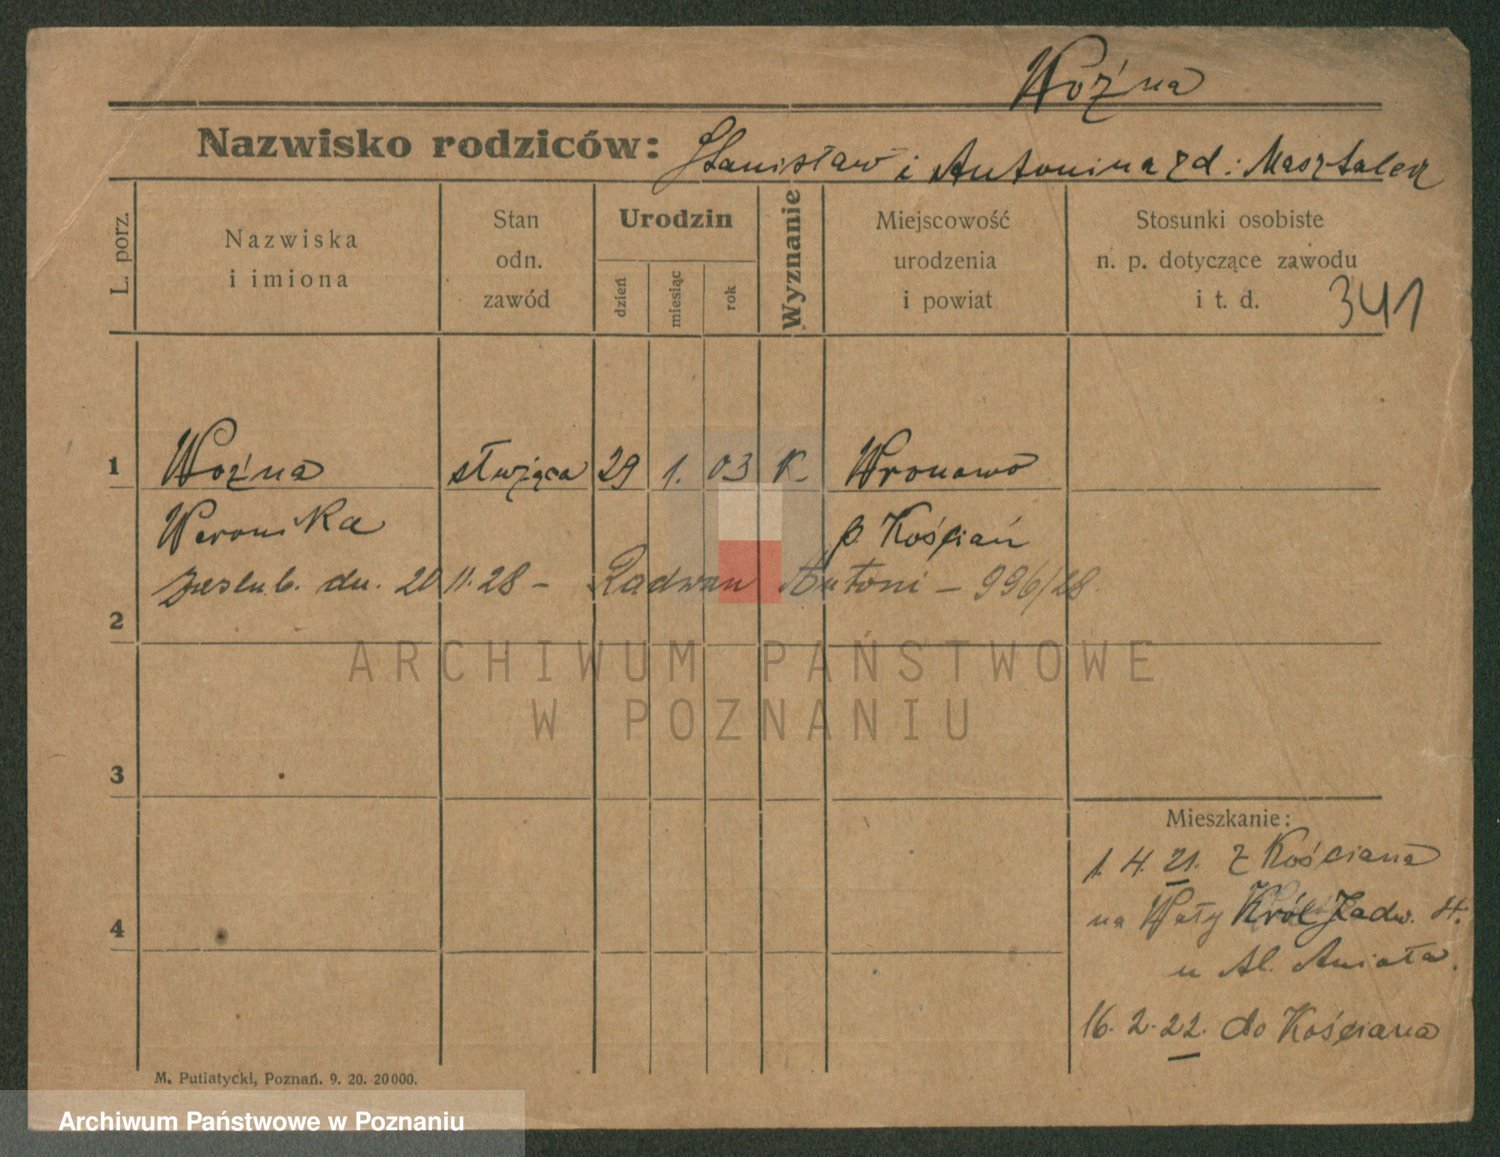 Woźna
Nazwisko rodziców: Stanisław i Antonina z d: Masztalerz
L. porz.
Nazwiska
i imiona
Stan
odn.
zawód
Urodzin
dzień
miesiąc
rok
Wyznanie
Miejscowość
urodzenia
i powiat
Stosunki osobiste
n. p. dotyczące zawodu
i t. d.
341
1 Woźna służąca 29 1. 03 K Wronowo
Weronika p Kościań
zaślub. dn. 20.11.28 - Radwan Antoni - 996/28.
2
ARCHIWUM PAŃSTWOWE
W POZNANIU
3
Mieszkanie:
1. 4. 21. z Kościana
na Wały Król Jadw. 4.
4
u Al. Anioła.
16. 2. 22. do Kościana
M. Putiatycki, Poznań. 9. 20. 20000.
Archiwum Państwowe w Poznaniu